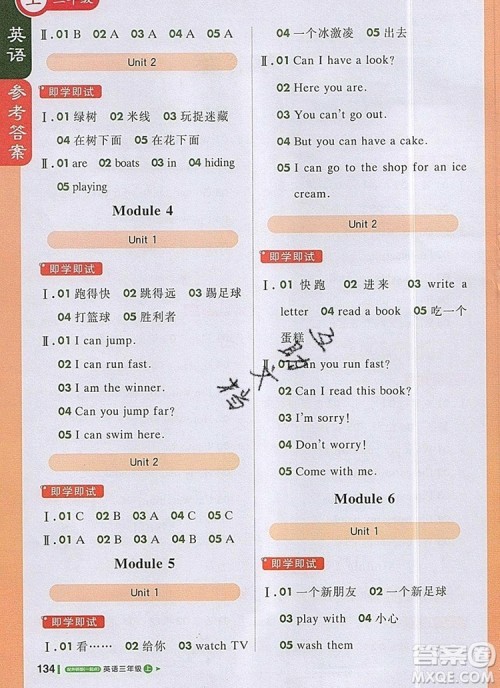 上 三年级
英语
参考答案
Ⅱ.01 B 02 A 03 A 04 A 05 A
Unit 2
即学即试
Ⅰ.01 绿树 02 米线 03 玩捉迷藏
04 在树下面 05 在花下面
Ⅱ.01 are 02 boats 03 in 04 hiding
05 playing
Module 4
Unit 1
即学即试
Ⅰ.01 跑得快 02 跳得远 03 踢足球
04 打篮球 05 胜利者
Ⅱ.01 I can jump.
02 I can run fast.
03 I am the winner.
04 Can you jump far?
05 I can swim here.
Unit 2
即学即试
Ⅰ.01 C 02 B 03 A 04 A 05 A
Ⅱ.01 C 02 A 03 A 04 B 05 C
Module 5
Unit 1
即学即试
Ⅰ.01 看…… 02 给你 03 watch TV
134 英语三年级 上
04 一个冰激凌 05 出去
Ⅱ.01 Can I have a look?
02 Here you are.
03 You can't go out.
04 But you can have a cake.
05 I can go to the shop for an ice
cream.
Unit 2
即学即试
Ⅰ.01 快跑 02 进来 03 write a
letter 04 read a book 05 吃一个
蛋糕
Ⅱ.01 Can you run fast?
02 Can I read this book?
03 I'm sorry!
04 Don't worry!
05 Come with me.
Module 6
Unit 1
即学即试
Ⅰ.01 一个新朋友 02 一个新足球
03 play with 04 小心
05 wash them
答案圈
MXQE.COM